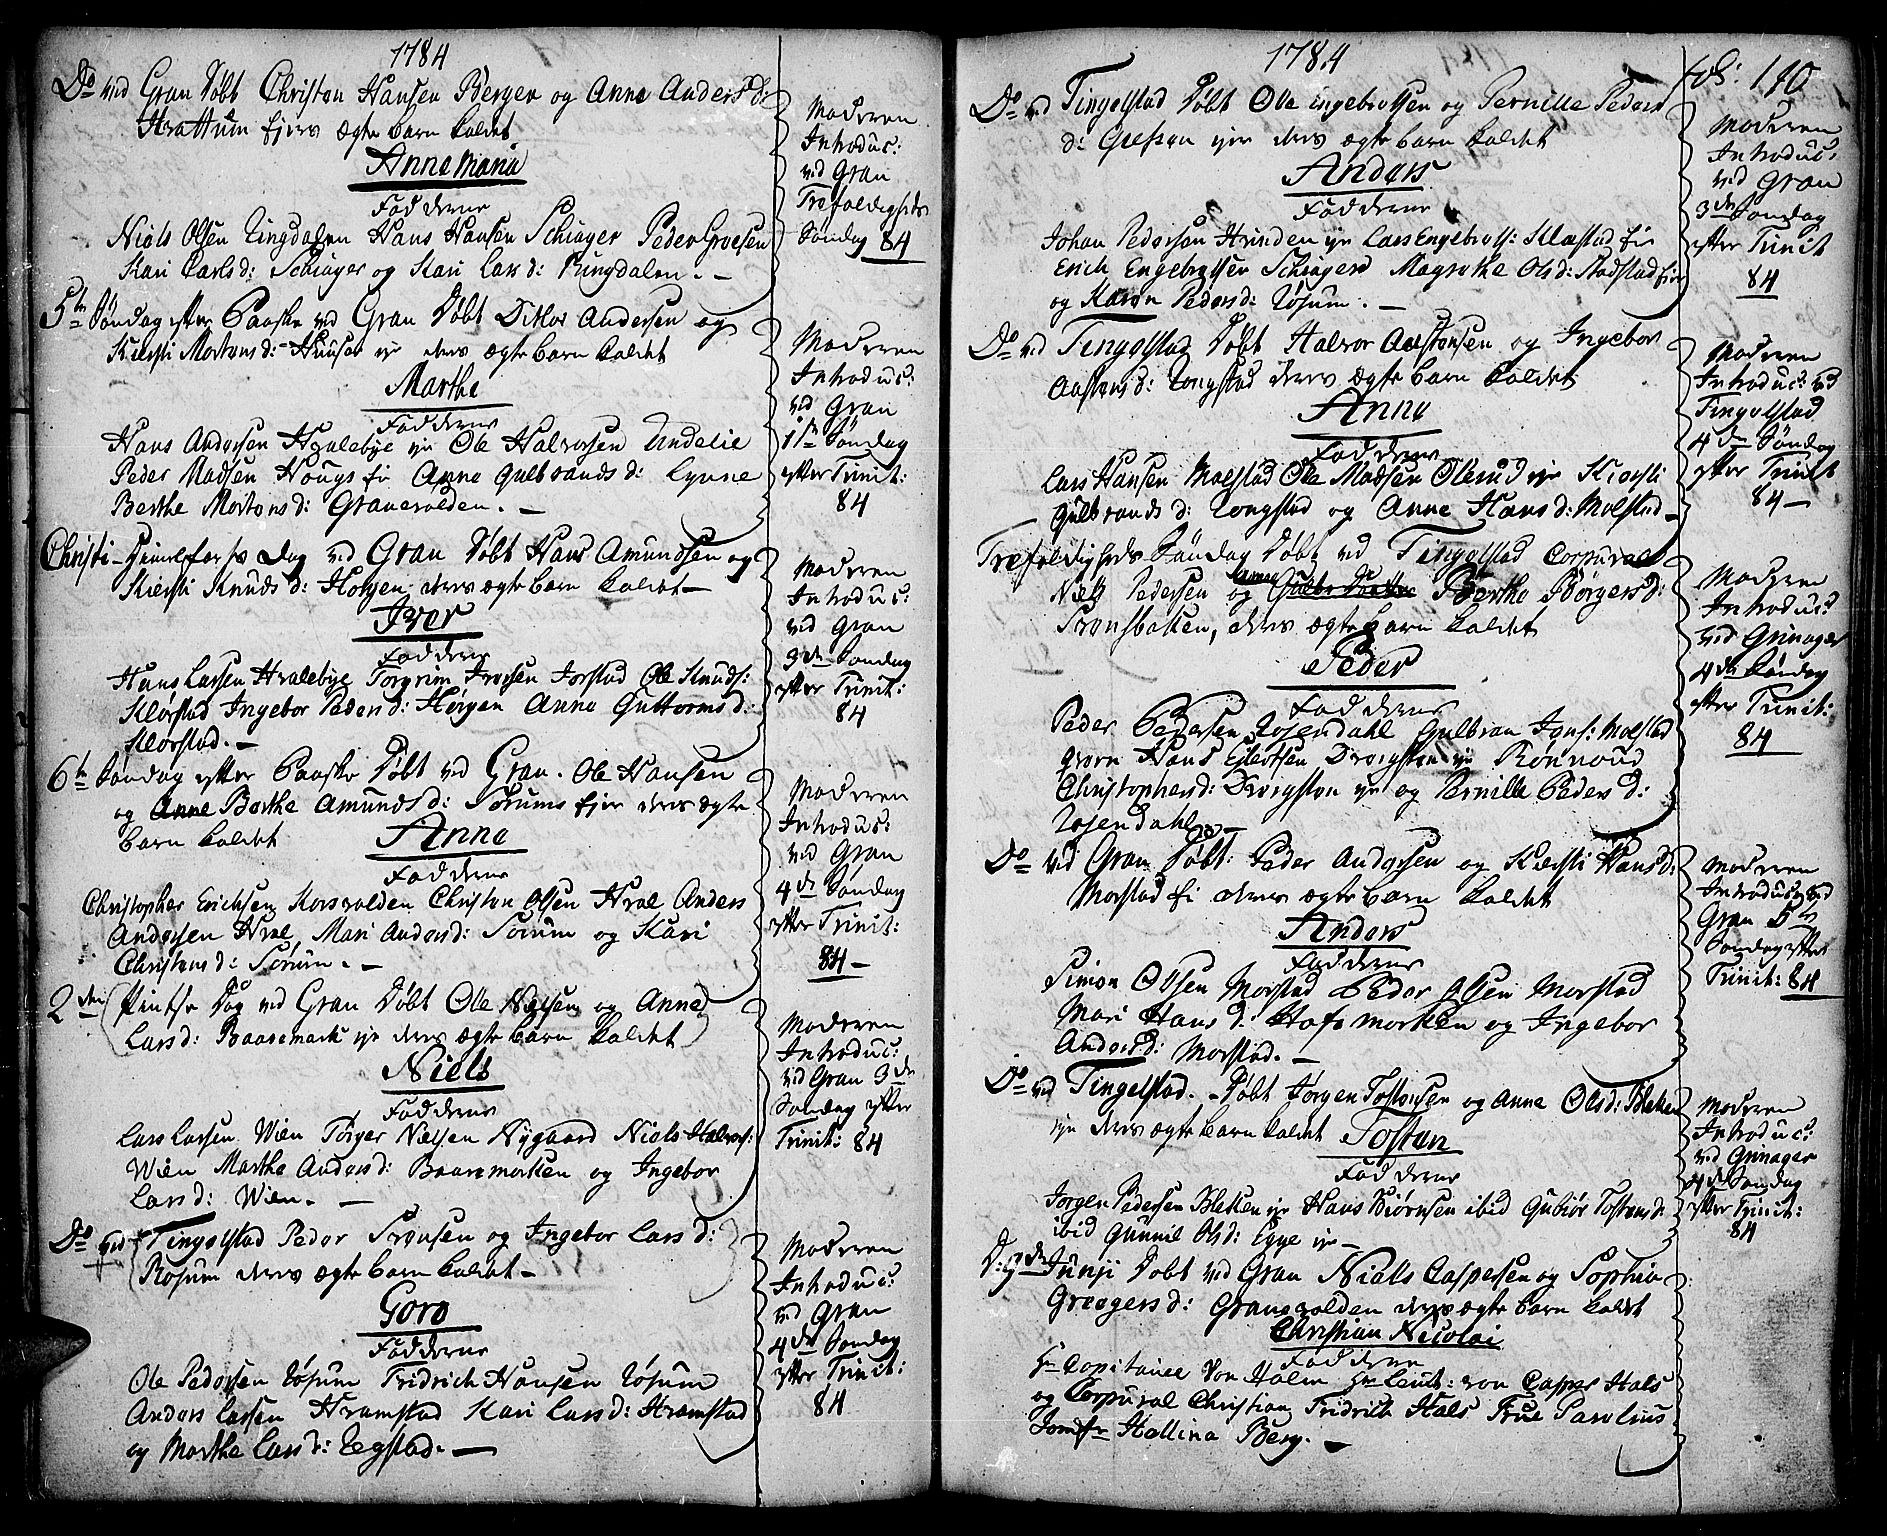 1784
Do ved Gran Døbt Christen Hansen Berger og Anne Anders d:
Hrattum eyers ægte barn kaldet
Anne Maria
Fadderne
Niels Olsen Ringdalen Hans Hansen Schiager Peder
Kari Carls d: Schiager og Kari Lars d: Ringdalen. –
Moderen
Introduc:
ved Gran
Trefoldigheds
Søndag 84
5te Søndag efter Paaske ved Gran Døbt Ditlor Andersen og
Kiersti Mortens d: eje deres ægte barn kaldet
Marthe
Fadderne
Hans Andersen Hvalebye eje Ole Halvorsen Undelie
Peder Madsen Hougs Anne Gulbrands d: Lynne
Berthe Mortens d: Granevolden. –
Moderen
Introduc:
ved Gran
11te Søndag
efter Trinit:
84
Christi Himmelfarts Dag ved Gran Døbt Hans Amundsen og
Kiersti Knuds d: Horgen deres ægte barn kaldet –
Iver
Fadderne
Hans Larsen Hvalebye Torgrim Iversen Jorstad Ole Knuds:
Klørstad Ingebor Peders d: Horgen Anne Guttorms d:
Klørstad. –
Moderen
Introduc:
ved Gran
3de Søndag
efter Trinit:
84
6te Søndag efter Paaske Døbt ved Gran. Ole Hansen
og Anne Berthe Amunds d: Sørums deres ægte
barn kaldet
Anne
Fadderne
Christopher Erichsen Korsvolden Christen Olsen Hval Anders
Andersen Hval Mari Anders d: Sørum og Kari
Christens d: Sørum. –
Moderen
Introduc:
ved Gran
4de Søndag
efter Trinit:
84 –
2den Pintse Dag ved Gran Døbt Ole Nielsen og Anne
Lars d: Baaremark eje deres ægte barn kaldet
Niels
Fadderne
Lars Larsen Wien Torger Nielsen Nygaard Niels Halvors:
Wien Marthe Anders d: Baaremarken og Ingebor
Lars d: Wien. –
Moderen
Introduc:
ved Gran 3de
Søndag efter
Trinit: 84
Do ved Tingelstad Peder Svensen og Ingebor Lars d:
Rosum deres ægte barn kaldet –
Goro
Fadderne
Ole Pedersen Røsum Fridrich Hansen Røsum
Anders Larsen Hramstad Kari Lars d: Hramstad
og Marthe Lars d: Egstad. –
Moderen
Introduc:
ved Gran
4de Søndag
efter Trinit:
84
1784
fol: 110
Do ved Tingelstad Døbt Ole Engebretsen og Pernille Peders
d: eje deres ægte barn kaldet
Anders
Fadderne
Johan Pedersen Hvinden eje Lars Engebrets: Klæstad
Erich Engebretsen Schiagerd Magrethe Ols d:
og Karen Peders d: Røsum. –
Moderen
Introduc:
ved Gran
3de Søndag
efter Trinit
84
Do ved Tingelstad Døbt Halvor Aastensen og Ingebor
Aastens d: Longstad deres ægte barn kaldet
Anne
Fadderne
Lars Hansen Molstad Ole Madsen Olerud eje Kiersti
Gulbrands d: Longstad og Anne Hans d: Molstad –
Moderen
Introduc: ved
Tingelstad
4de Søndag
efter Trinit
84 –
Trefoldigheds Søndag Døbt ved Tingelstad Corpural
Niels Pedersen og Berthe Børgers d:
Svensbakken, deres ægte barn kaldet
Peder
Fadderne
Peder Pedersen Rosendahl Gulbran Molstad
Hans Eilertsen Dvergsten eje Rønnoud
Christophers d: Dvergsten eje og Pernille Peders d:
Rosendahl. –
Moderen
Introduc:
ved Grinager
4de Søndag
efter Trinit:
84
Do ved Gran Døbt: Peder Andersen og Kiersti Hans d:
Morstad deres ægte barn kaldet
Anders
Fadderne
Simon Olsen Morstad Peder Olsen Morstad
Mari Hans d: Hofsmarken og Ingebor
Anders d: Morstad. –
Moderen
Introduc: ved
Gran 5te
Søndag efter
Trinit: 84
Do ved Tingelstad. Døbt Jørgen Tostensen og Anne Ols d: Bleken
eje deres ægte barn kaldet Tosten
Fadderne
Jørgen Pedersen Bleken eje Hans Biørnsen ibid Gubiør Tostens d:
ibid Gunnil Ols d: Egge eje –
Moderen
Introduc:
ved Grinager
4de Søndag
efter Trinit:
84
D: 9de Junji Døbt ved Gran Niels Caspersen og Sophia
Gregers d: Granevolden deres ægte barn kaldet
Christian Nicolai
Fadderne
Hr Capitaine Von Halm Hr Leut: von Casper Hals
og Corpural Christian Fridrich Hals Frue Parelius
Jomfr Hellina Berg. –